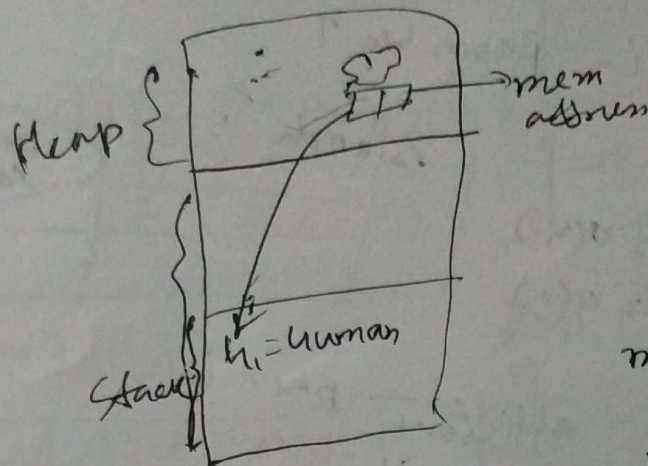 Heap
mem
address
h1 = Human
Stack
m